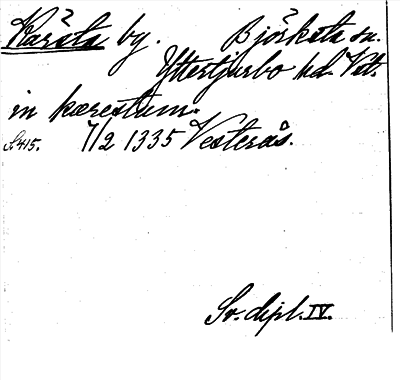 Karsta by. Björksta sn.
Yttertjurbo hd. Vst.
in kærestum.
S. 415. 7/2 1335 Vesterås.
Sv. dipl. IV.